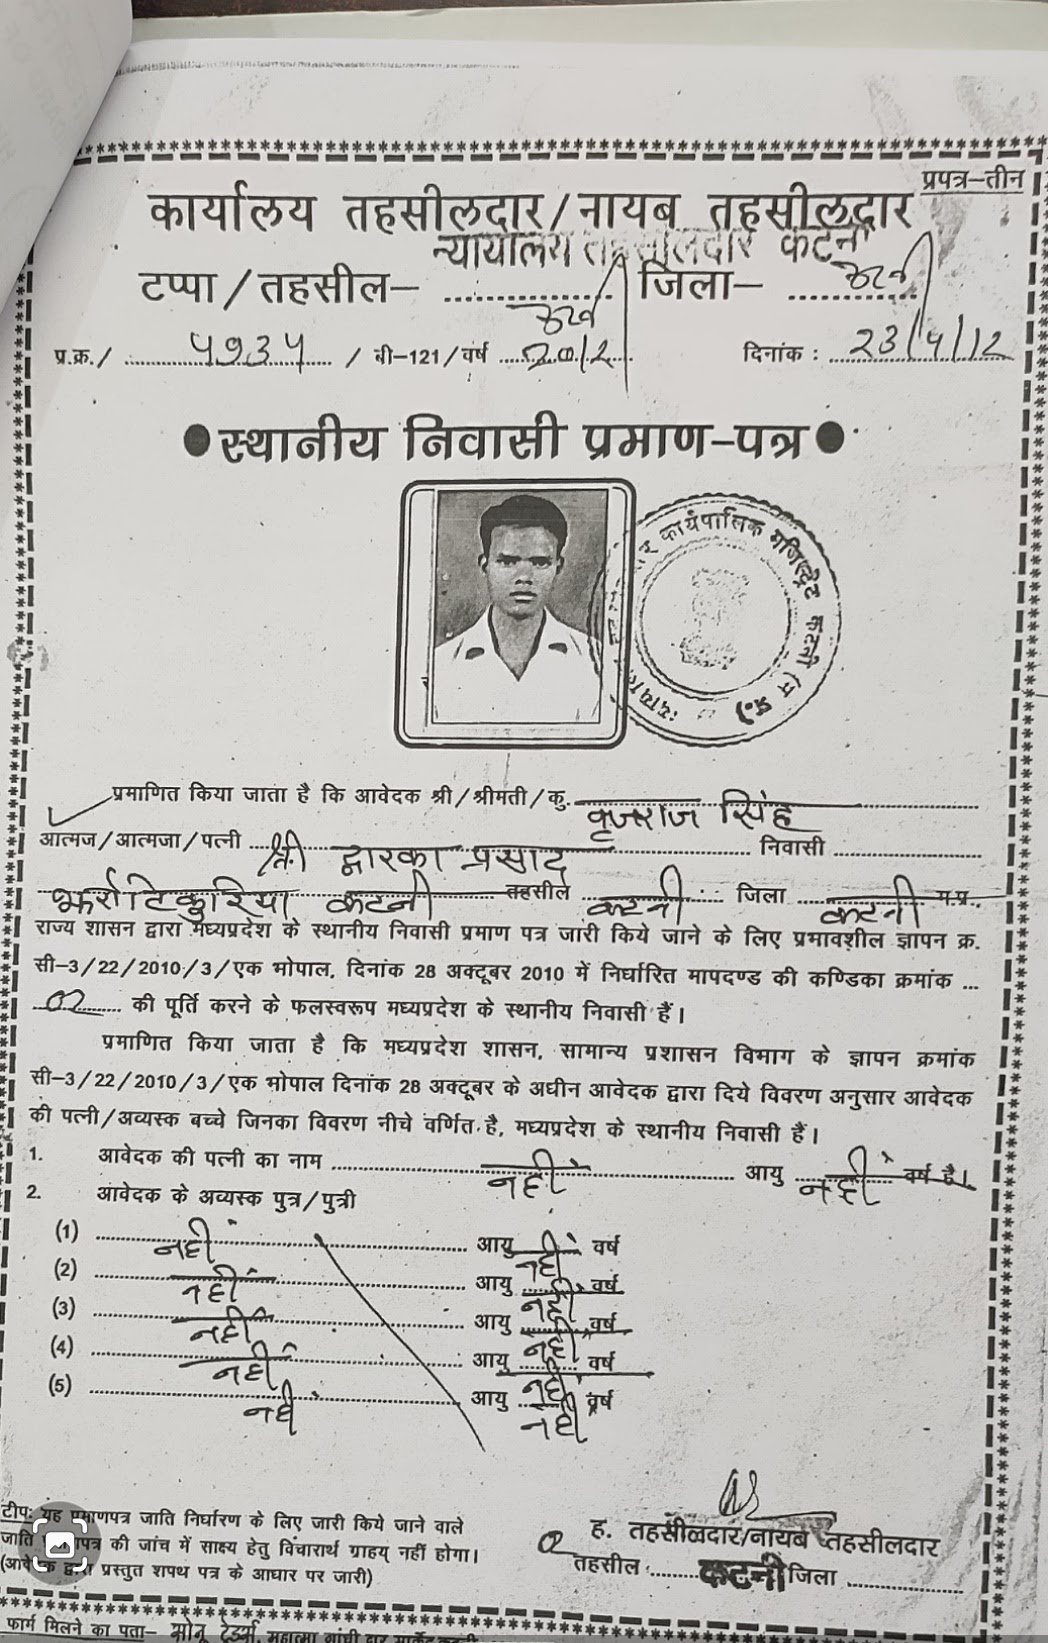 प्रपत्र–तीन
कार्यालय तहसीलदार/नायब तहसीलदार
न्यायालय तहसीलदार कटनी
टप्पा/तहसील– कटनी जिला– कटनी
प्र.क्र./ ५१३५ / बी–121/वर्ष 2012 दिनांक : 23/4/12
●स्थानीय निवासी प्रमाण–पत्र●
कार्यपालिक मजिस्ट्रेट कटनी (म.प्र.)
प्रमाणित किया जाता है कि आवेदक श्री/श्रीमती/कु. वृजराज सिंह
आत्मज/आत्मजा/पत्नी श्री द्वारका प्रसाद निवासी
झर्राटिकुरिया कटनी तहसील कटनी जिला कटनी म.प्र.
राज्य शासन द्वारा मध्यप्रदेश के स्थानीय निवासी प्रमाण पत्र जारी किये जाने के लिए प्रभावशील ज्ञापन क्र.
सी–3/22/2010/3/एक भोपाल, दिनांक 28 अक्टूबर 2010 में निर्धारित मापदण्ड की कण्डिका क्रमांक ...
02 की पूर्ति करने के फलस्वरूप मध्यप्रदेश के स्थानीय निवासी हैं।
प्रमाणित किया जाता है कि मध्यप्रदेश शासन, सामान्य प्रशासन विभाग के ज्ञापन क्रमांक
सी–3/22/2010/3/एक भोपाल दिनांक 28 अक्टूबर के अधीन आवेदक द्वारा दिये विवरण अनुसार आवेदक
की पत्नी/अव्यस्क बच्चे जिनका विवरण नीचे वर्णित है, मध्यप्रदेश के स्थानीय निवासी हैं।
1. आवेदक की पत्नी का नाम नहीं आयु नहीं वर्ष है।
2. आवेदक के अव्यस्क पुत्र/पुत्री
(1) नहीं आयु नहीं वर्ष
(2) नहीं आयु नहीं वर्ष
(3) नहीं आयु नहीं वर्ष
(4) नहीं आयु नहीं वर्ष
(5) नहीं आयु नहीं वर्ष
टीपः यह प्रमाणपत्र जाति निर्धारण के लिए जारी किये जाने वाले
जाति प्रमाणपत्र की जांच में साक्ष्य हेतु विचारार्थ ग्राहय् नहीं होगा।
(आवेदक द्वारा प्रस्तुत शपथ पत्र के आधार पर जारी)
ह. तहसीलदार/नायब तहसीलदार
तहसील कटनी जिला
फार्म मिलने का पता– सोनू ट्रेडर्स, महात्मा गांधी द्वार मार्केट कटनी